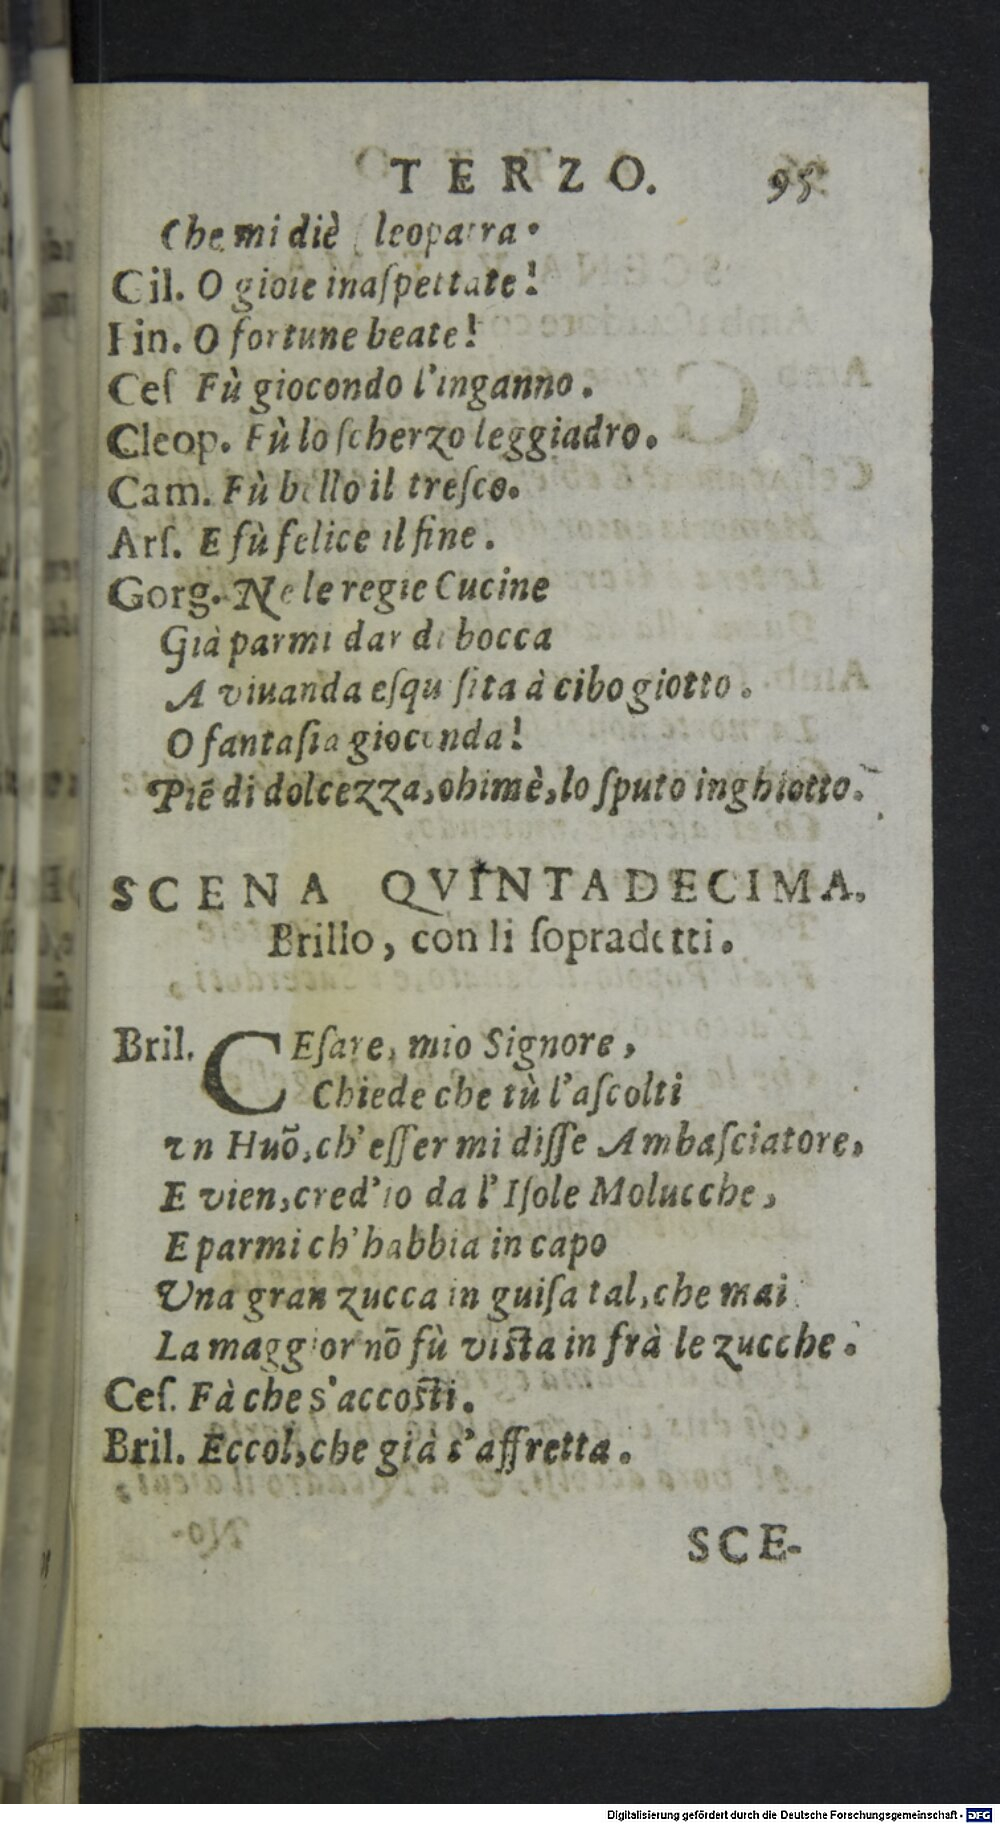 TERZO. 95
Che mi diè Cleopatra.
Cil. O gioie inaſpettate!
Fin. O fortune beate!
Ceſ Fù giocondo l'inganno.
Cleop. Fù lo ſcherzo leggiadro.
Cam. Fù bello il treſco.
Arſ. E fù felice il fine.
Gorg. Ne le regie Cucine
Già parmi dar di bocca
A viuanda eſquiſita à cibo giotto.
O fantaſia gioconda!
Piē di dolcezza, ohimè, lo ſputo inghiotto.
SCENA QVINTADECIMA.
Brillo, con li ſopradetti.
Bril. CEſare, mio Signore,
Chiede che tù l'aſcolti
vn Huō, ch'eſſer mi diſſe Ambaſciatore,
E vien, cred'io da l'Iſole Molucche,
E parmi ch'habbia in capo
Vna gran zucca in guiſa tal, che mai
La maggior nō fù viſta in frà le zucche.
Ceſ. Fà che s'accoſti.
Bril. Eccol, che già s'affretta.
SCE-
Digitalisierung gefördert durch die Deutsche Forschungsgemeinschaft - DFG